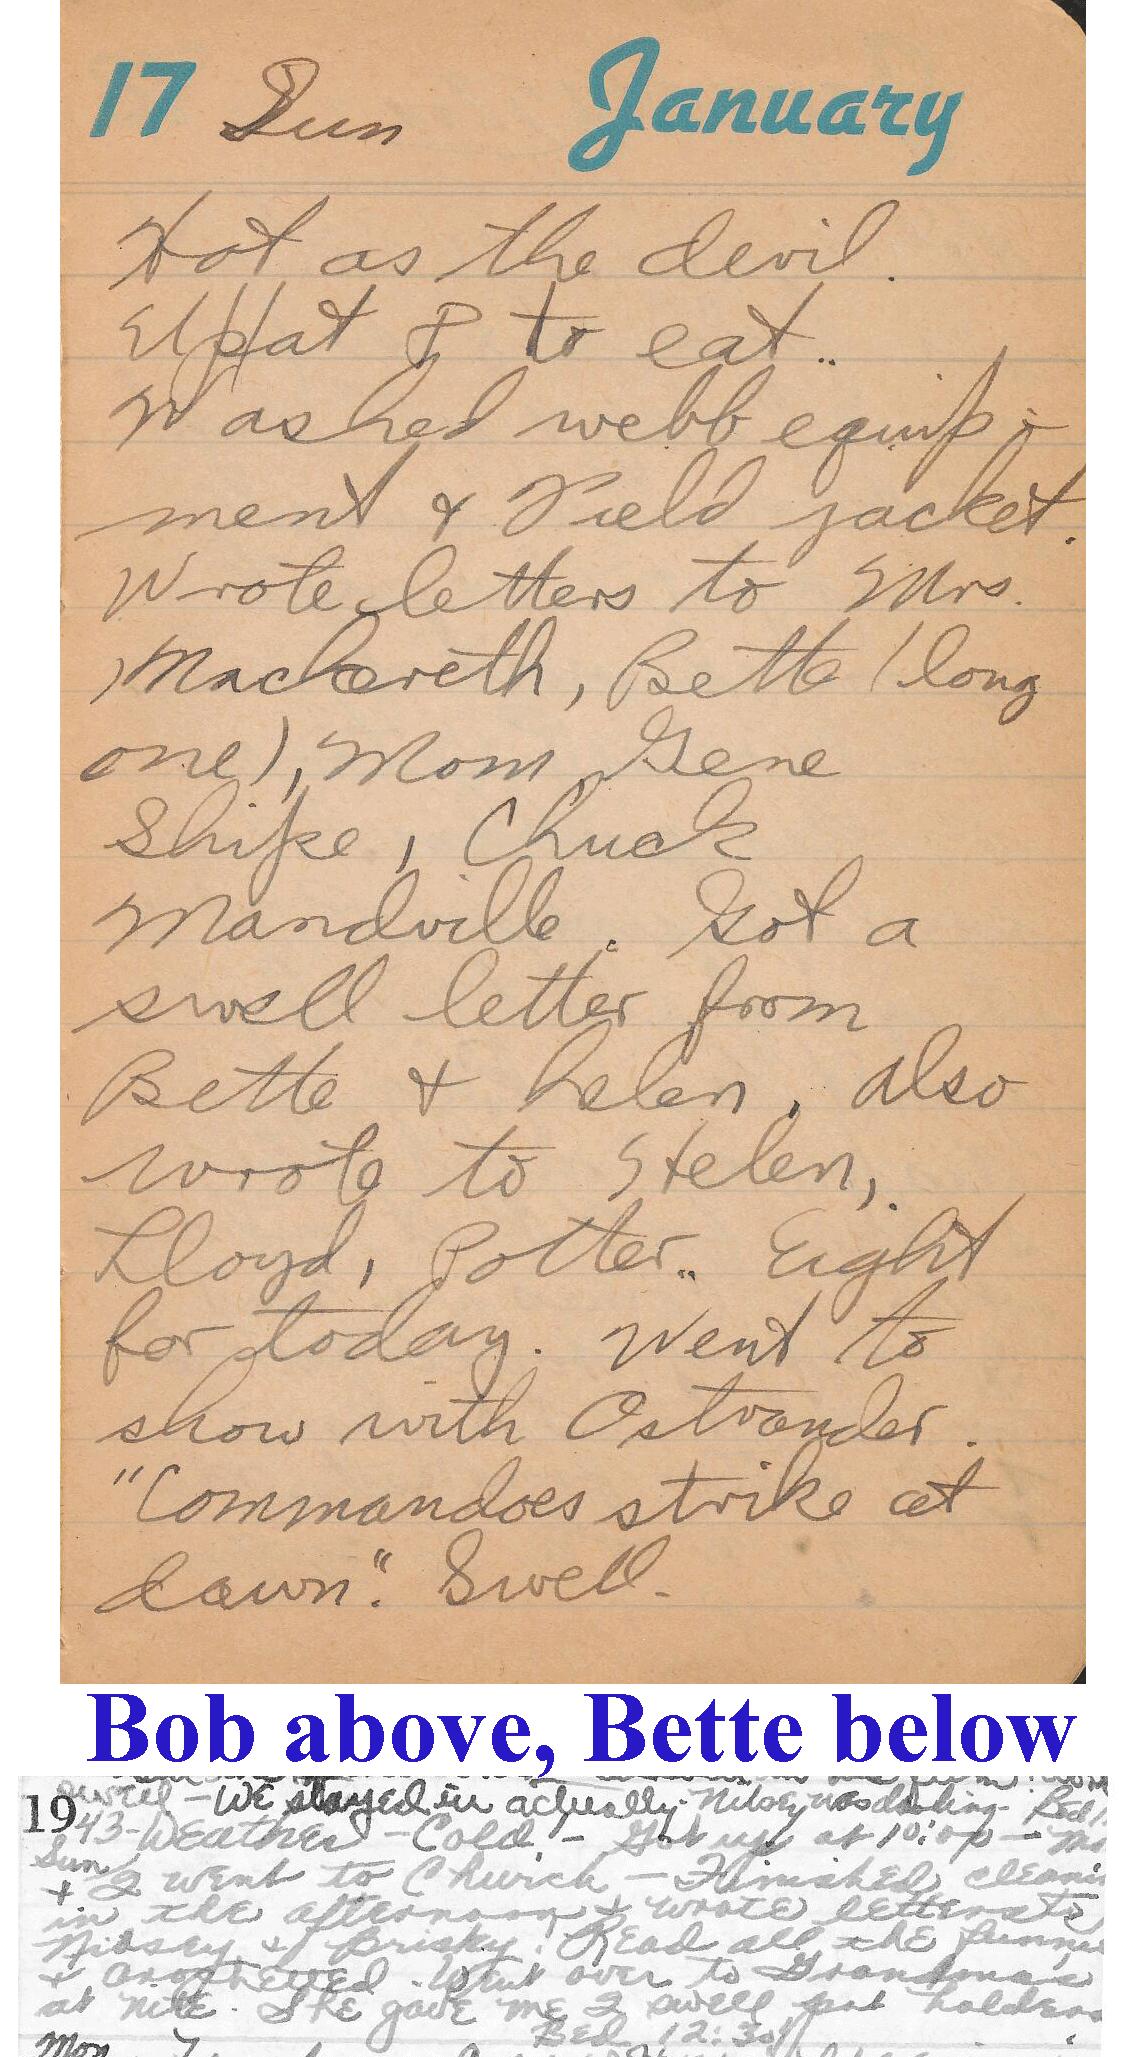 17 Sun January
Hot as the devil.
Up at 8 to eat..
Washed webb equip-
ment & Field jacket.
Wrote letters to Mrs.
Mackereth, Bette (long
one), Mom, Gene
Shipe, Chuck
Mandville. Got a
swell letter from
Bette & helen, also
wrote to Helen,
Lloyd, Potter.. Eight
for today. Went to
show with Ostrander.
"Commandoes strike at
dawn". Swell.
Bob above, Bette below
swell - WE stayed in actually. was darling - Bed
1943 - WEather - Cold - Got up at 10:00 - Mo
Sun
& I went to Church - Finished cleanin
in the afternoon & wrote letters to
& Brisky. REad all thE funnie
& crochetted. Went over to Grandmas
at nite. ShE gave me 2 swell pot holders
Bed 12:30
Mon